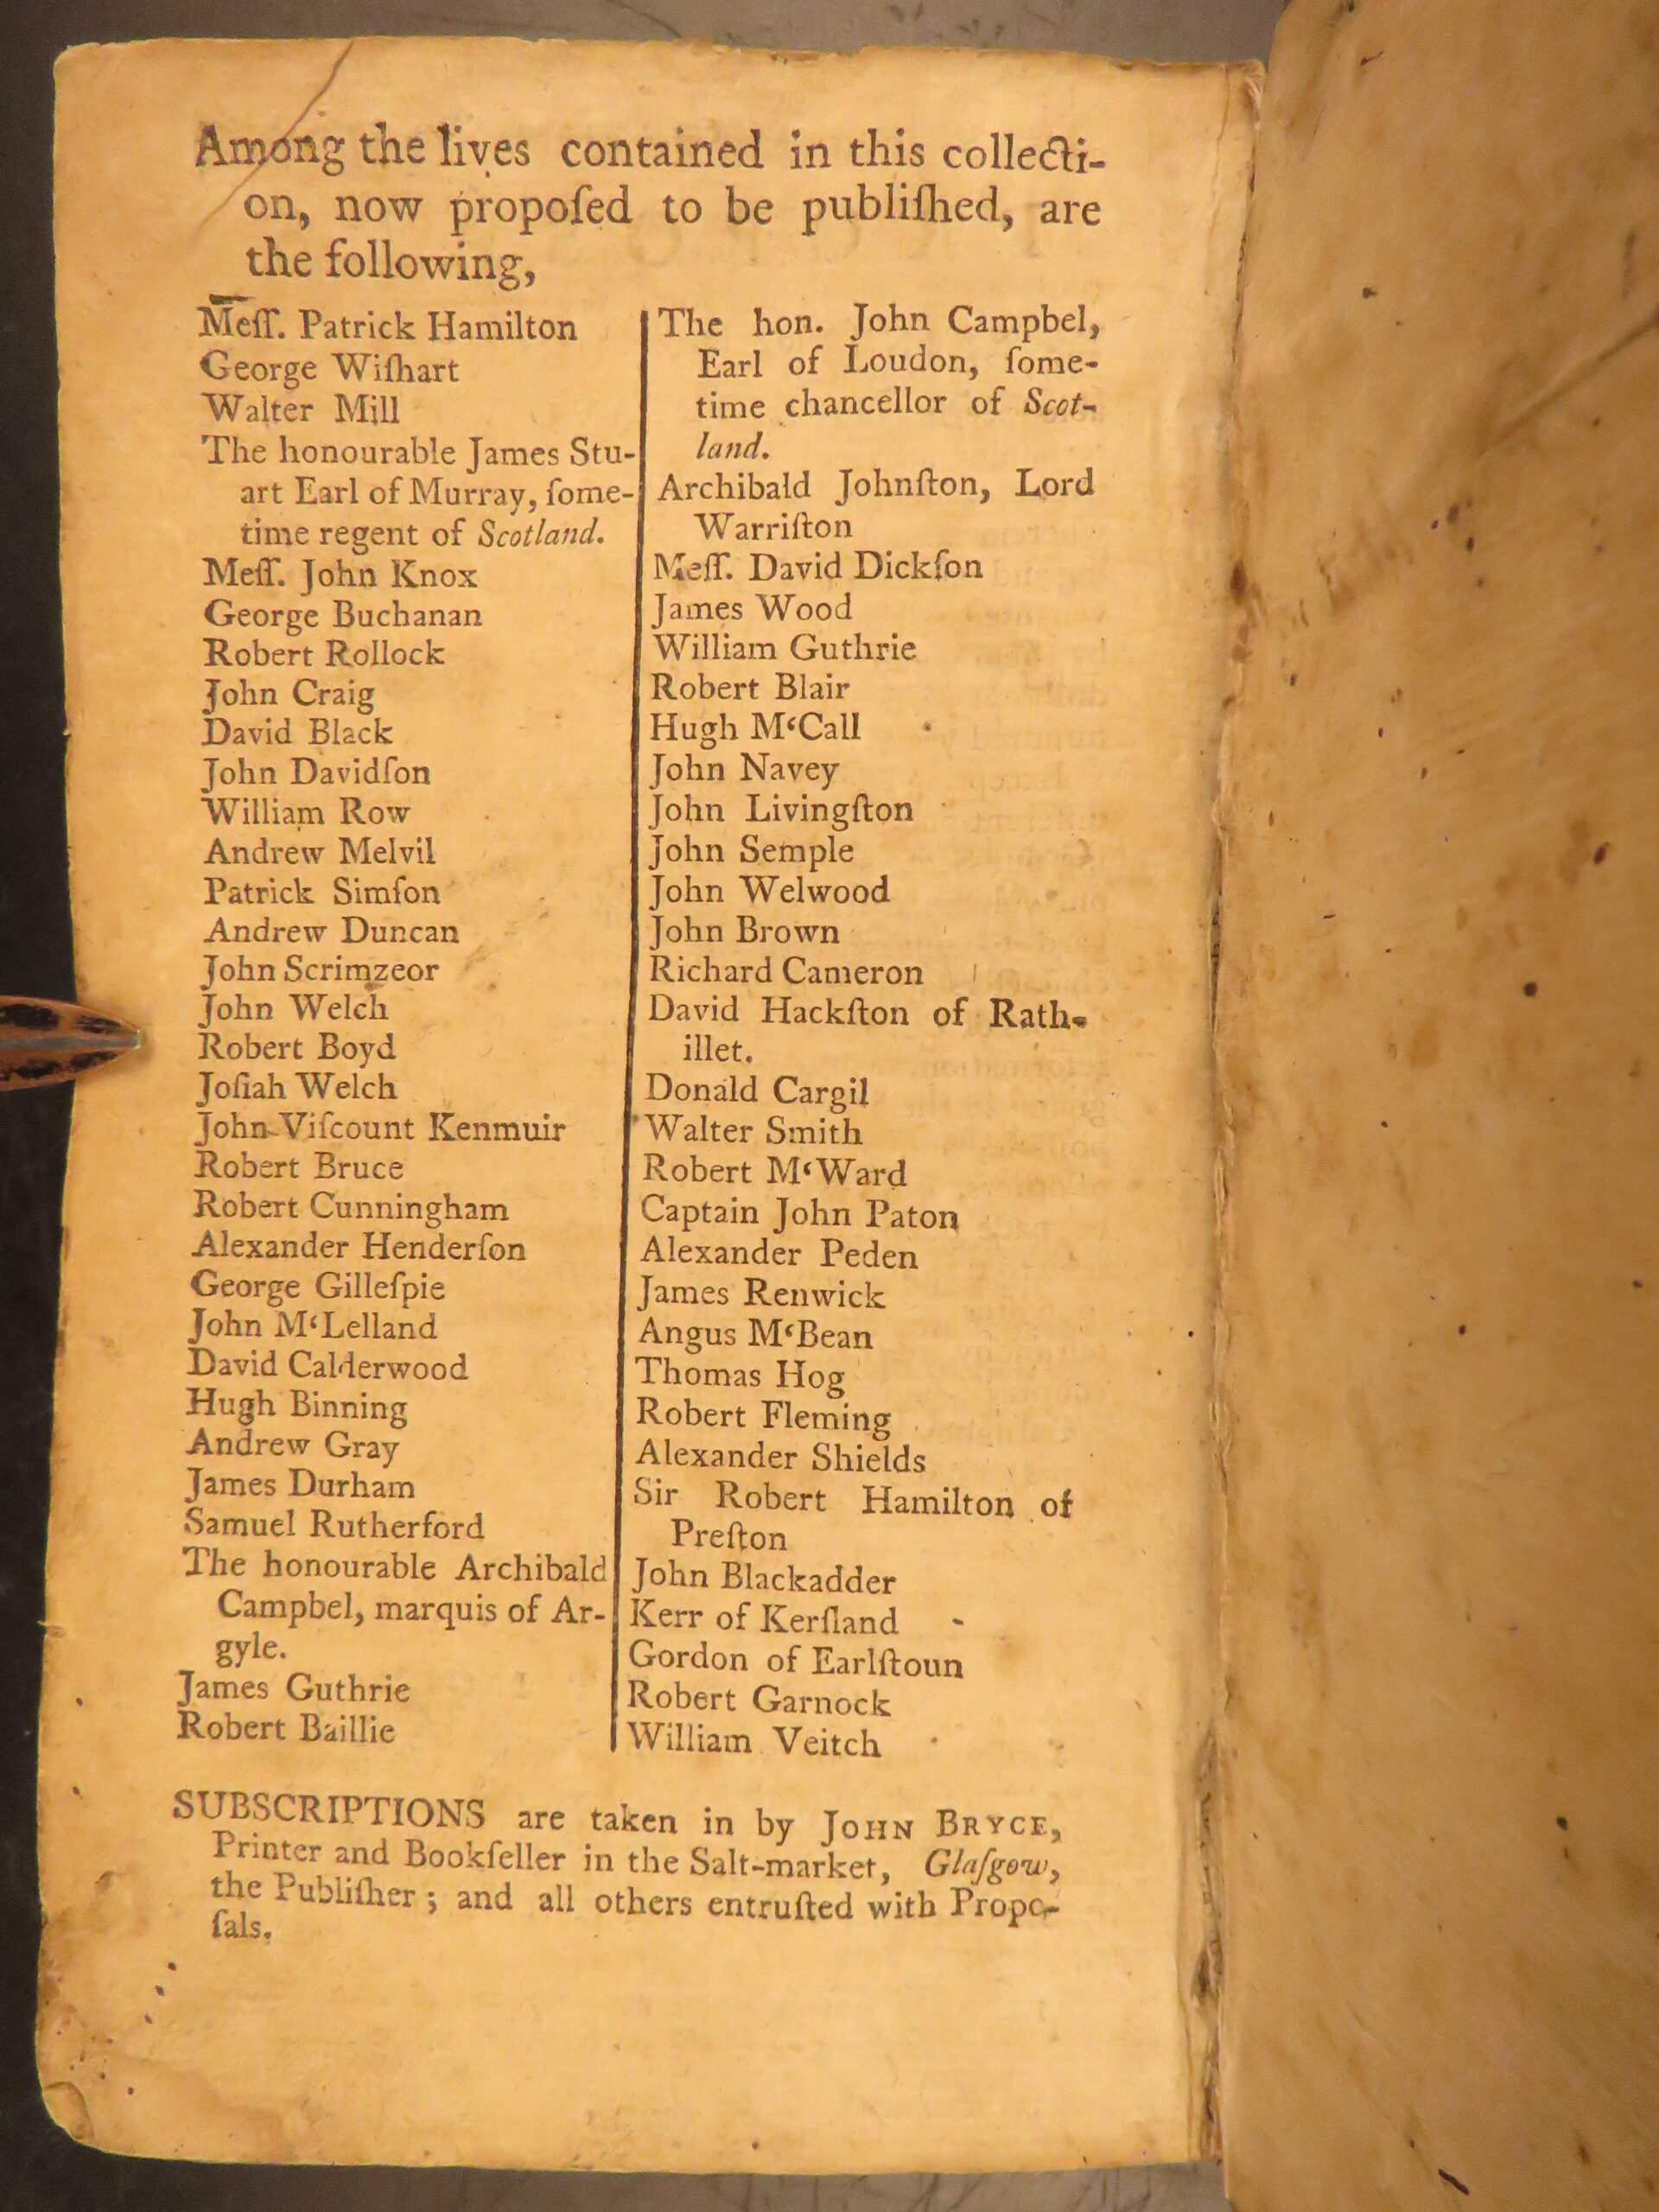 Among the lives contained in this collecti-
on, now propoſed to be publiſhed, are
the following,
Meſſ. Patrick Hamilton
George Wiſhart
Walter Mill
The honourable James Stu-
art Earl of Murray, ſome-
time regent of Scotland.
Meſſ. John Knox
George Buchanan
Robert Rollock
John Craig
David Black
John Davidſon
William Row
Andrew Melvil
Patrick Simſon
Andrew Duncan
John Scrimzeor
John Welch
Robert Boyd
Joſiah Welch
John Viſcount Kenmuir
Robert Bruce
Robert Cunningham
Alexander Henderſon
George Gilleſpie
John M‘Lelland
David Calderwood
Hugh Binning
Andrew Gray
James Durham
Samuel Rutherford
The honourable Archibald
Campbel, marquis of Ar-
gyle.
James Guthrie
Robert Baillie
The hon. John Campbel,
Earl of Loudon, ſome-
time chancellor of Scot-
land.
Archibald Johnſton, Lord
Warriſton
Meſſ. David Dickſon
James Wood
William Guthrie
Robert Blair
Hugh M‘Call
John Navey
John Livingſton
John Semple
John Welwood
John Brown
Richard Cameron
David Hackſton of Rath-
illet.
Donald Cargil
Walter Smith
Robert M‘Ward
Captain John Paton
Alexander Peden
James Renwick
Angus M‘Bean
Thomas Hog
Robert Fleming
Alexander Shields
Sir Robert Hamilton of
Preſton
John Blackadder
Kerr of Kerſland
Gordon of Earlſtoun
Robert Garnock
William Veitch
SUBSCRIPTIONS are taken in by JOHN BRYCE,
Printer and Bookſeller in the Salt-market, Glaſgow,
the Publiſher; and all others entruſted with Propo-
ſals.